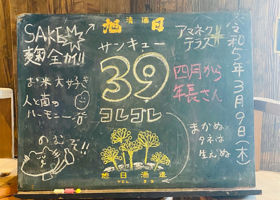 SAKE
麹全力!!
お米大好き
人と菌の
ハーモニー
のむぞ!!
清酒
旭日
サンキュー
39
コレコレ
旭日酒造
アマネク
テラス
四月から
年長さん
まかぬ
タネは
生えぬ
令和5年3月9日(木)